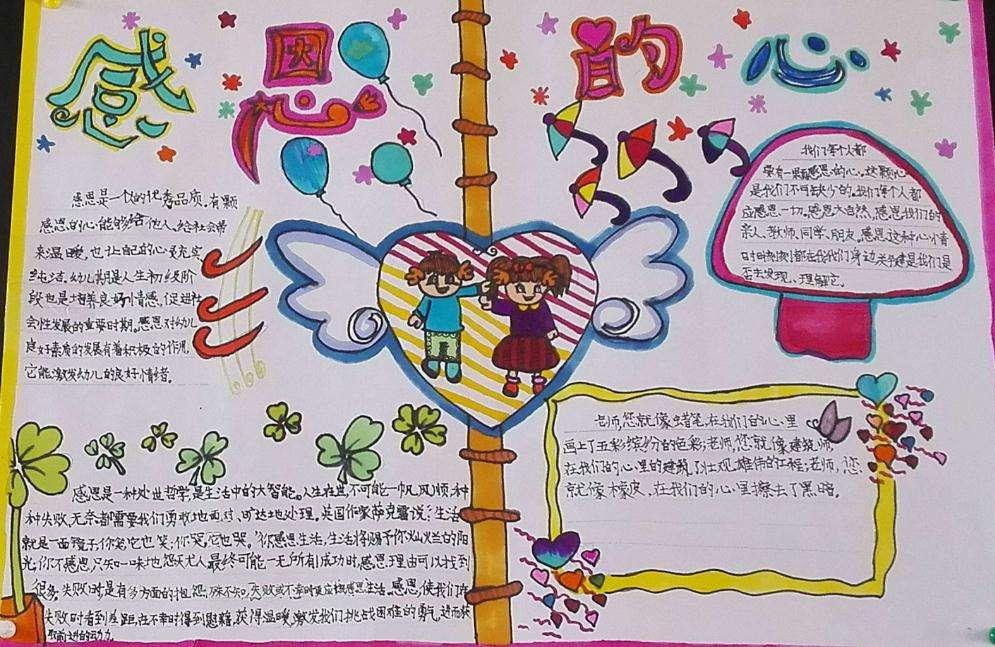 感恩的心
感恩是一个的优秀品质。有颗
感恩的心能够给他人、给社会带
来温暖,也让自己的心灵充实
纯洁。幼儿期是人生初级阶
段也是培养良好情感,促进社
会性发展的重要时期。感恩对幼儿
良好素质的发展有着积极的作用,
它能激发幼儿的良好情绪。
我们每个人都
要有一颗感恩的心。这颗心
是我们不可缺少的。我们每个人都
应感恩一切。感恩大自然、感恩我们的
亲人、教师、同学、朋友。感恩这种心情
时时刻刻都在我们身边关键是我们是
否去发现、理解它。
老师,您就像蜡笔,在我们的心里
画上五彩缤纷的色彩;老师,您就像建筑师,
在我们的心里的建筑了壮观雄伟的工程;老师,您
就像橡皮,在我们的心里擦去了黑暗。
感恩是一种处世哲学,是生活中的大智能。人生在世,不可能一帆风顺,种
种失败、无奈都需要我们勇敢地面对、旷达地处理。英国作家萨克雷说:生活
就是一面镜子,你笑它也笑;你哭,它也哭。”你感恩生活,生活将赐予你灿烂的阳
光;你不感恩,只知一味地怨天尤人,最终可能一无所有!成功时,感恩理由可以找到
很多;失败时
失败时看到差距,在不幸时得到慰藉,获得温暖,激发我们挑战困难的勇气,进而获
取前进的动力。